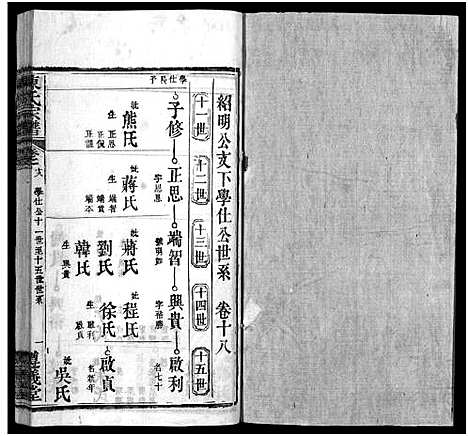 紹明公支下學仕公世系 卷十八
十一世 十二世 十三世 十四世 十五世
學仕長子
子修 正思 端智 興貴 啟利
字思恩
號明如
字裕勝
名七十
妣熊氏
生 正思 正侃 正謹
妣蔣氏
生 端智 端貴 端本
妣蔣氏 劉氏 韓氏
生 興貴
妣程氏 徐氏
生 啟利 啟貞
啟貞
名新年
妣吳氏
氏宗譜
卷之十八 學仕公十一世至十五世世系
一
義堂